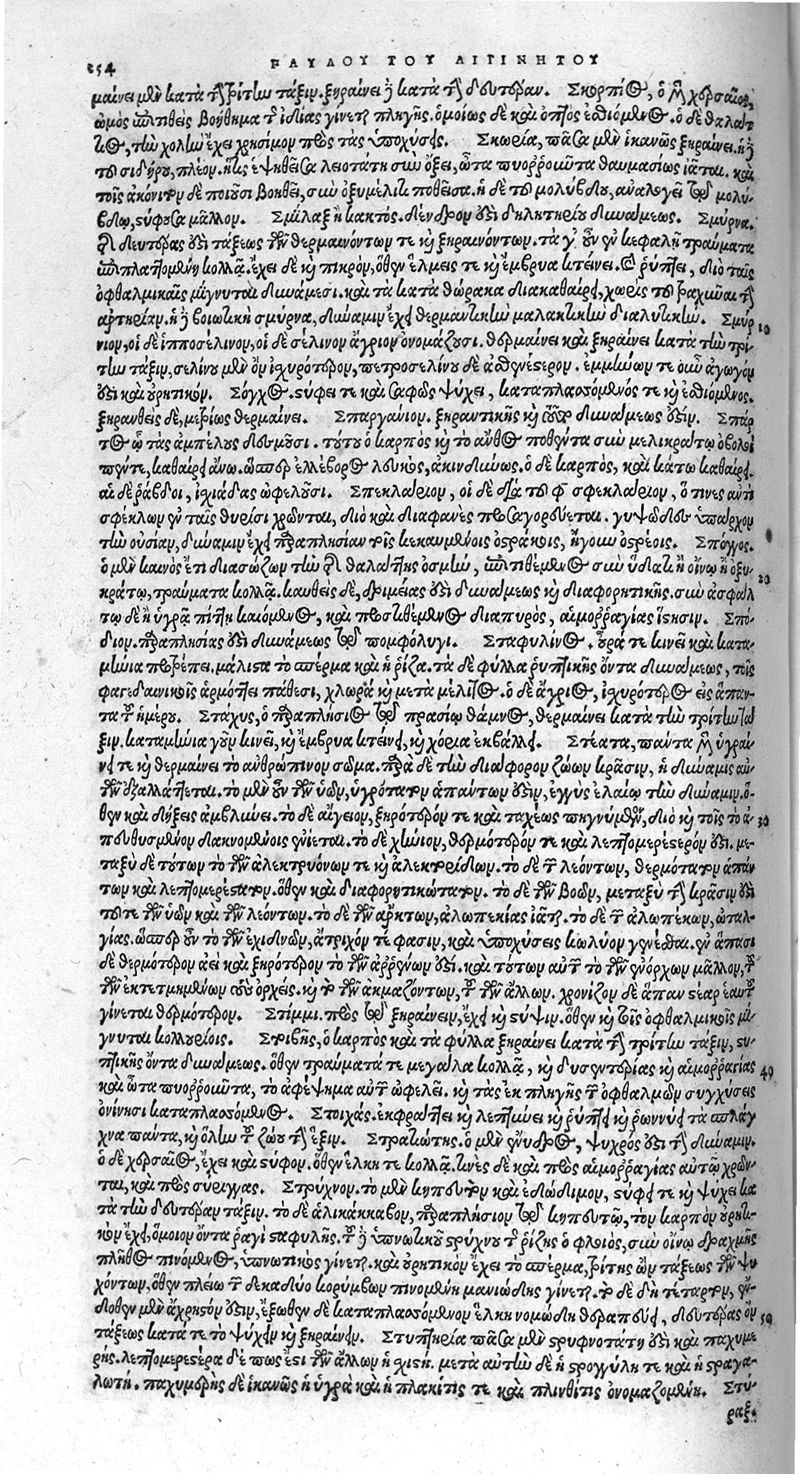 254 ΠΑΥΛΟΥ ΤΟΥ ΑΙΓΙΝΗΤΟΥ
μαίνει μὲν κατὰ τὴν τρίτην τάξιν. ξηραίνει δὲ κατὰ τὴν δευτέραν. Σκορπίος, ὁ μὲν χερσαῖος,
ὠμὸς ἐπιτιθεὶς βοήθημα τῆς ἰδίας γίνεται πληγῆς. ὁμοίως δὲ καὶ ὀπτὸς ἐσθιόμενος. ὁ δὲ θαλάτ-
τιος, τὴν χολὴν ἔχει χρήσιμον πρὸς τὰς ὑποχύσεις. Σκωρία, πᾶσα μὲν ἱκανῶς ξηραίνει. ἡ δὲ
τοῦ σιδήρου, πλέον. ἥτις ἑψηθεῖσα λειοτάτη σὺν ὄξει, ὦτα πυορροοῦντα θαυμασίως ἰᾶται. καὶ
τοῖς ἀκόνιτον δὲ πιοῦσι βοηθεῖ, σὺν ὀξυμέλιτι ποθεῖσα. ἡ δὲ τοῦ μολύβδου, ἀναλογεῖ τῷ μολύ-
βδῳ, στύφουσα μᾶλλον. Σμῖλαξ ἢ κακτός. δένδρον ἐστὶ δηλητηρίου δυνάμεως. Σμύρνα.
τῆς δευτέρας ἐστὶ τάξεως τῶν θερμαινόντων τε καὶ ξηραινόντων. τὰ γοῦν ἐν κεφαλῇ τραύματα
ἐπιπλαττομένη κολλᾷ. ἔχει δὲ καὶ πικρὸν, ὅθεν ἕλμεις τε καὶ ἔμβρυα κτείνει. καὶ ῥύπτει, διὸ ταῖς
ὀφθαλμικαῖς μίγνυται δυνάμεσι. καὶ τὰ κατὰ θώρακα διακαθαίρει, χωρὶς τοῦ τραχῦναι τὴν
ἀρτηρίαν. ἡ δὲ βοιωτικὴ σμύρνα, δύναμιν ἔχει θερμαντικὴν μαλακτικὴν διαλυτικήν. Σμύρ- 10
νιον, οἱ δὲ ἱπποσέλινον, οἱ δὲ σέλινον ἄγριον ὀνομάζουσι. θερμαίνει καὶ ξηραίνει κατὰ τὴν τρί-
την τάξιν, σελίνου μὲν ὂν ἰσχυρότερον, πετροσελίνου δὲ ἀσθενέστερον. ἐμμήνων τε οὖν ἀγωγόν
ἐστι καὶ οὐρητικόν. Σόγχος. στύφει τε καὶ σαφῶς ψύχει, καταπλασσόμενός τε καὶ ἐσθιόμενος.
ξηρανθεὶς δὲ, μετρίως θερμαίνει. Σπαργάνιον. ξηραντικῆς καὶ αὐτό δυνάμεώς ἐστιν. Σπάρ-
τος ᾧ τὰς ἀμπέλους δεσμοῦσι. τούτου ὁ καρπὸς καὶ τὸ ἄνθος ποθέντα σὺν μελικράτῳ ὀβολοὶ
πέντε, καθαίρει ἄνω. ὥσπερ ἑλλέβορος λευκὸς, ἀκινδύνως. ὁ δὲ καρπὸς, καὶ κάτω καθαίρει.
αἱ δὲ ῥάβδοι, ἰσχιάδας ὠφελοῦσι. Σπεκλάριον, οἱ δὲ διὰ τοῦ φ σφεκλάριον, ὅ τινες ἀντὶ
σφέκλων ἐν ταῖς θυρίσι χρῶνται, διὸ καὶ διαφανὲς προσαγορεύεται. γυψῶδες ὑπάρχον
τὴν οὐσίαν, δύναμιν ἔχει παραπλησίαν τοῖς κεκαυμένοις ὀστράκοις, ἤγουν ὀστρέοις. Σπόγγος.
ὁ μὲν καινὸς ἔτι διασώζων τὴν τῆς θαλάττης ὀσμὴν, ἐπιτιθέμενος σὺν ὕδατι ἢ οἴνῳ ἢ ὀξυ-
κράτῳ, τραύματα κολλᾷ. καυθεὶς δὲ, δριμείας ἐστὶ δυνάμεως καὶ διαφορητικῆς. σὺν ἀσφάλ- 20
τῳ δὲ ἢ ὑγρᾷ πίττῃ καιόμενος, καὶ προστιθέμενος διάπυρος, αἱμορραγίας ἵστησιν. Σπό-
διον. παραπλησίας ἐστὶ δυνάμεως τῷ πομφόλυγι. Σταφυλῖνος. οὖρά τε κινεῖ καὶ κατα-
μήνια προτρέπει. μάλιστα τὸ σπέρμα καὶ ἡ ῥίζα. τὰ δὲ φύλλα ῥυπτικῆς ὄντα δυνάμεως, τοῖς
φαγεδαινικοῖς ἁρμόττει πάθεσι, χλωρὰ καὶ μετὰ μέλιτος. ὁ δὲ ἄγριος, ἰσχυρότερος εἰς ἅπαν-
τα τοῦ ἡμέρου. Στάχυς, ὁ παραπλήσιος τῷ πρασίῳ θάμνος, θερμαίνει κατὰ τὴν τρίτην τά-
ξιν. καταμήνια γοῦν κινεῖ, καὶ ἔμβρυα κτείνει, καὶ χόρια ἐκβάλλει. Στέατα, πάντα μὲν ὑγραί-
νει τε καὶ θερμαίνει τὸ ἀνθρώπινον σῶμα. παρὰ δὲ τὴν διάφορον ζώων κρᾶσιν, ἡ δύναμις αὐ-
τῶν ἐξαλλάττεται. τὸ μὲν οὖν τῶν ὑῶν, ὑγρότατον ἁπάντων ἐστὶν, ἐγγὺς ἐλαίῳ τὴν δύναμιν. ὅ-
θεν καὶ δήξεις ἀμβλύνει. τὸ δὲ αἴγειον, ξηρότερόν τε καὶ ταχέως πηγνύμενον, διὸ καὶ τοῖς τὸ ἀ- 30
πευθυσμένον δακνομένοις ἐνίεται. τὸ δὲ χήνιον, θερμότερόν τε καὶ λεπτομερέστερόν ἐστι. με-
ταξὺ δὲ τούτων τὸ τῶν ἀλεκτρυόνων τε καὶ ἀλεκτορίδων. τὸ δὲ τῶν λεόντων, θερμότατον ἁπάν-
των καὶ λεπτομερέστατον. ὅθεν καὶ διαφορητικώτατον. τὸ δὲ τῶν βοῶν, μεταξὺ τὴν κρᾶσιν ἐστὶ
τοῦτε τῶν ὑῶν καὶ τῶν λεόντων. τὸ δὲ τῶν ἄρκτων, ἀλωπεκίας ἰᾶται. τὸ δὲ τῶν ἀλωπέκων, ὠταλ-
γίας. ὥσπερ οὖν τὸ τῶν ἐχιδνῶν, ἄτριχόν τε φασὶν, καὶ ὑποχύσεις κωλύον γενέσθαι. ἐν ἅπασι
δὲ θερμότερον ἀεὶ καὶ ξηρότερον τὸ τῶν ἀρρένων ἐστί. καὶ τούτων αὐτῶν τὸ τῶν ἐνόρχων μᾶλλον, τοῦ
τῶν ἐκτετμημένων τοὺς ὄρχεις. καὶ τὸ τῶν ἀκμαζόντων, τοῦ τῶν ἄλλων. χρονίζον δὲ ἅπαν στέαρ ἑαυτοῦ
γίνεται θερμότερον. Στίμμι. πρὸς τῷ ξηραίνειν, ἔχει καὶ στύψιν. ὅθεν καὶ τοῖς ὀφθαλμικοῖς μί-
γνυται κολλουρίοις. Στοιβῆς, ὁ καρπὸς καὶ τὰ φύλλα ξηραίνει κατὰ τὴν τρίτην τάξιν, στυ-
πτικῆς ὄντα δυνάμεως. ὅθεν τραύματά τε μεγάλα κολλᾷ, καὶ δυσεντερίας καὶ αἱμορραγίας 40
καὶ ὦτα πυορροοῦντα, τὸ ἀφέψημα αὐτῶν ὠφελεῖ. καὶ τὰς ἐκ πληγῆς τῶν ὀφθαλμῶν συγχύσεις
ὀνίνησι καταπλασσόμενος. Στοιχάς. ἐκφράττει καὶ λεπτύνει καὶ ῥύπτει καὶ ῥώννυσι τὰ σπλάγ-
χνα πάντα, καὶ ὅλην τοῦ ζώου τὴν ἕξιν. Στρατιώτης. ὁ μὲν ἔνυδρος, ψυχρός ἐστι τὴν δύναμιν.
ὁ δὲ χερσαῖος, ἔχει καὶ στύφον. ὅθεν ἕλκη τε κολλᾷ. τινὲς δὲ καὶ πρὸς αἱμορραγίας αὐτῷ χρῶν-
ται, καὶ πρὸς σύριγγας. Στρύχνον. τὸ μὲν κηπευτὸν καὶ ἐδώδιμον, στύφει τε καὶ ψύχει κα-
τὰ τὴν δευτέραν τάξιν. τὸ δὲ ἁλικάκκαβον, παραπλήσιον τῷ κηπευτῷ, τὸν καρπὸν οὐρητι-
κὸν ἔχει, ὅμοιον ὄντα ῥαγὶ σταφυλῆς. τοῦ δὲ ὑπνωτικοῦ στρύχνου τῆς ῥίζης ὁ φλοιὸς, σὺν οἴνῳ δραχμῆς
πλῆθος πινόμενος, ὑπνωτικὸς γίνεται. καὶ οὐρητικὸν ἔχει τὸ σπέρμα, τρίτης ὂν τάξεως τῶν ψυ-
χόντων, ὅθεν πλείω τῶν δεκαδύο κορύμβων πινομένη μανιώδη γίνεται. τὸ δὲ δὴ τέταρτον, ἔν-
δοθεν μὲν ἄχρηστόν ἐστιν, ἔξωθεν δὲ καταπλασσόμενον ἕλκη νομώδη θεραπεύει, δευτέρας ὂν 50
τάξεως κατά τε τὸ ψύχειν καὶ ξηραίνειν. Στυπτηρία πᾶσα μὲν στρυφνοτάτη ἐστὶ καὶ παχυμε-
ρής. λεπτομερεστέρα δέ πως ἐστὶ τῶν ἄλλων ἡ σχιστή. μετὰ αὐτὴν δὲ ἡ στρογγύλη τε καὶ ἡ στραγα-
λωτή. παχυμερὴς δὲ ἱκανῶς ἡ ὑγρὰ καὶ ἡ πλακῖτίς τε καὶ πλινθῖτις ὀνομαζομένη. Στύ-
ραξ.